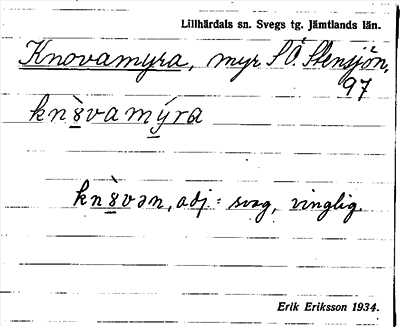 Lillhärdals sn. Svegs tg. Jämtlands län.
Knovamyra, myr SÖ Stensjön,
97
kn8̀vamýra
kn8̀vən, adj = svag, vinglig.
Erik Eriksson 1934.